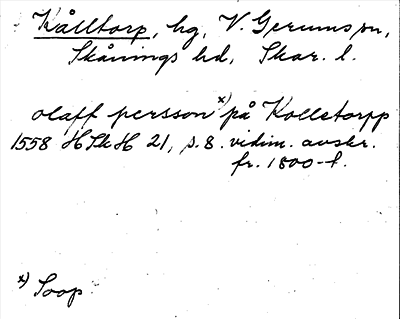 Kålltorp, hg, V. Gerums sn,
Skånings hd, Skar. l.
olaff persson x) på Kolletorpp
1558 HSkH 21, s. 8. vidim. avskr.
fr. 1800-t.
x) Soop